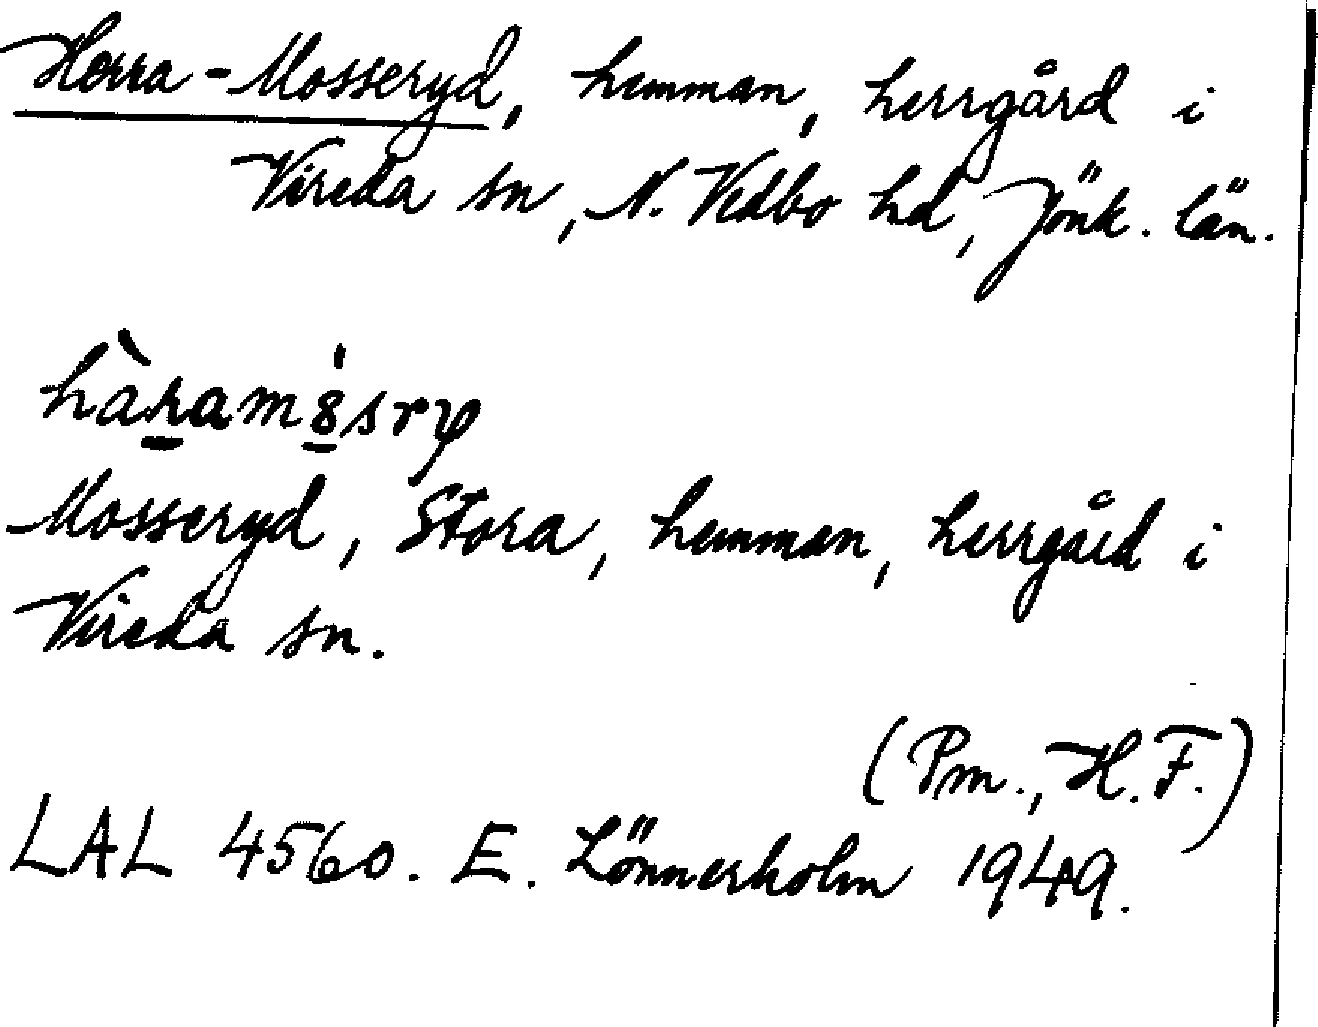 Herra-Mosseryd, hemman, herrgård i
Vireda sn, N. Vedbo hd, Jönk. län.
hàramȣ́sry
Mosseryd, Stora, hemman, herrgård i
Vireda sn.
(Pm., H.F.)
LAL 4560. E. Lönnerholm 1949.